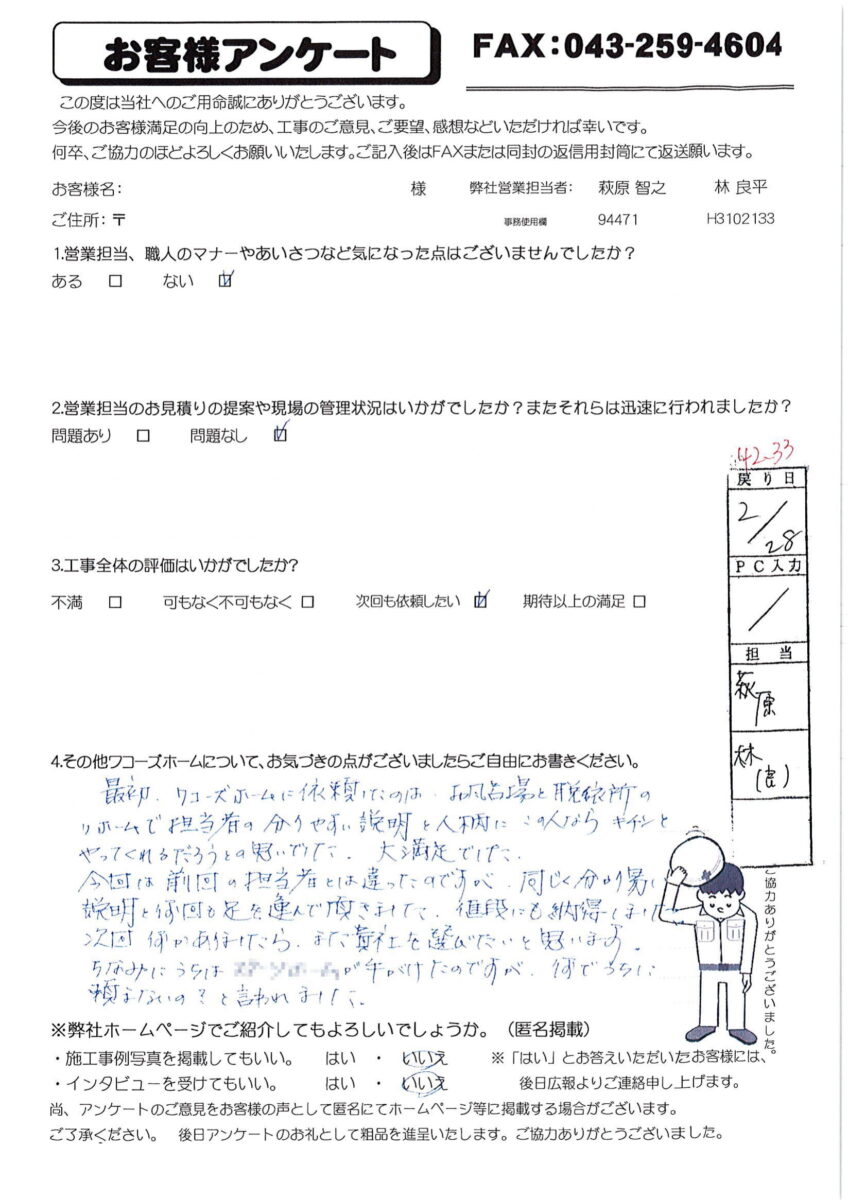 お客様アンケート
FAX:043-259-4604
この度は当社へのご用命誠にありがとうございます。
今後のお客様満足の向上のため、工事のご意見、ご要望、感想などいただければ幸いです。
何卒、ご協力のほどよろしくお願いいたします。ご記入後はFAXまたは同封の返信用封筒にて返送願います。
お客様名: 様 弊社営業担当者: 萩原 智之 林 良平
ご住所:〒 事務使用欄 94471 H3102133
1.営業担当、職人のマナーやあいさつなど気になった点はございませんでしたか？
ある □ ない ☑
2.営業担当のお見積りの提案や現場の管理状況はいかがでしたか？またそれらは迅速に行われましたか？
問題あり □ 問題なし ☑
42-33
戻り日
2/28
PC入力
/
担当
萩原
林
3.工事全体の評価はいかがでしたか？
不満 □ 可もなく不可もなく □ 次回も依頼したい ☑ 期待以上の満足 □
4.その他ワコーズホームについて、お気づきの点がございましたらご自由にお書きください。
最初、ワコーズホームに依頼したのは、お風呂場と脱衣所の
リホームで担当者の分りやすい説明と人柄に この人なら キチンと
やってくれるだろうとの思いでした、大満足でした、
今回は前回の担当者とは違ったのですが、同じく分り易い
説明と何回も足を運んで頂きました、値段にも納得しました
次回何かありましたら、また貴社を選びたいと思います。
ちなみにうちは が手がけたのですが、何でうちに
頼まないの？と言われました、
ご協力ありがとうございました。
※弊社ホームページでご紹介してもよろしいでしょうか。（匿名掲載）
・施工事例写真を掲載してもいい。 はい ・ いいえ ※「はい」とお答えいただいたお客様には、
・インタビューを受けてもいい。 はい ・ いいえ 後日広報よりご連絡申し上げます。
尚、アンケートのご意見をお客様の声として匿名にてホームページ等に掲載する場合がございます。
ご了承ください。 後日アンケートのお礼として粗品を進呈いたします。ご協力ありがとうございました。